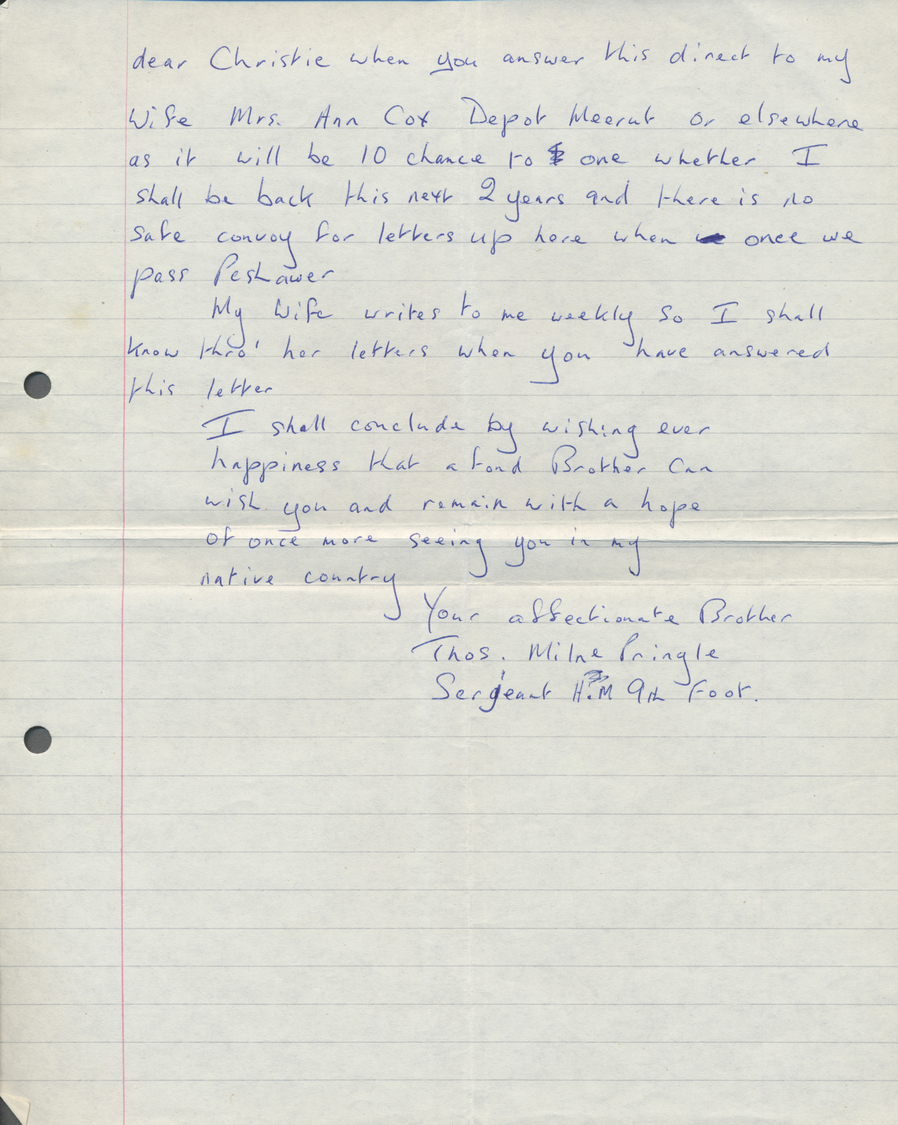 dear Christie when you answer this direct to my
Wife Mrs. Ann Cox Depot Meerut or elsewhere
as it will be 10 chance to one whether I
shall be back this next 2 years and there is no
safe convoy for letters up here when once we
pass Peshawer
My Wife writes to me weekly so I shall
know thro' her letters when you have answered
this letter
I shall conclude by wishing ever
happiness that a fond Brother can
wish you and remain with a hope
of once more seeing you in my
native country
Your affectionate Brother
Thos. Milne Pringle
Sergeant H.M 9th Foot.